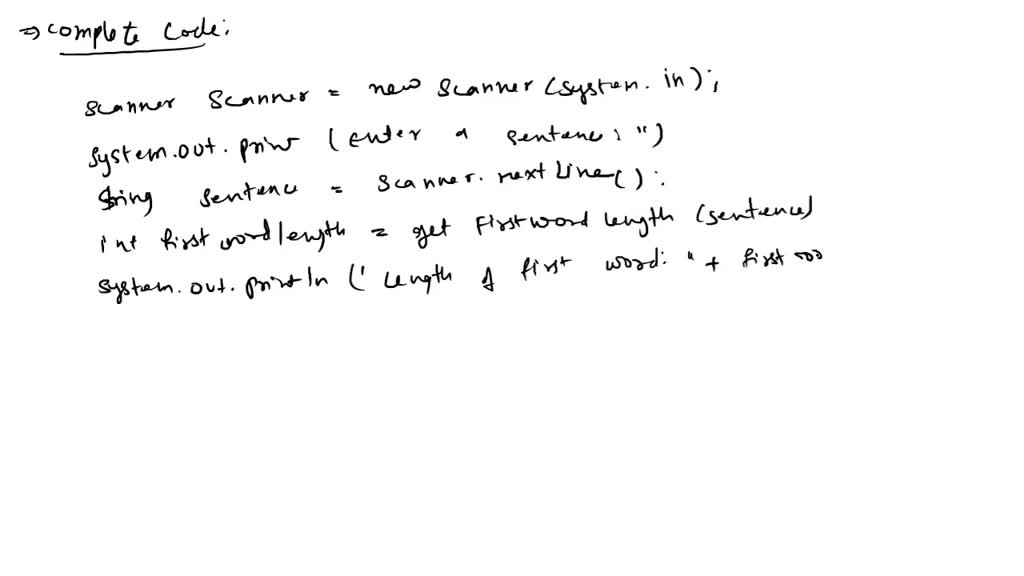 ⇒ complete code:
scanner scanner = new scanner (system.in);
system.out.print (Enter a sentence: ")
string sentence = scanner.nextLine():
int first word length = get First word length (sentence)
system.out.println (' Length of first word: " + first wo